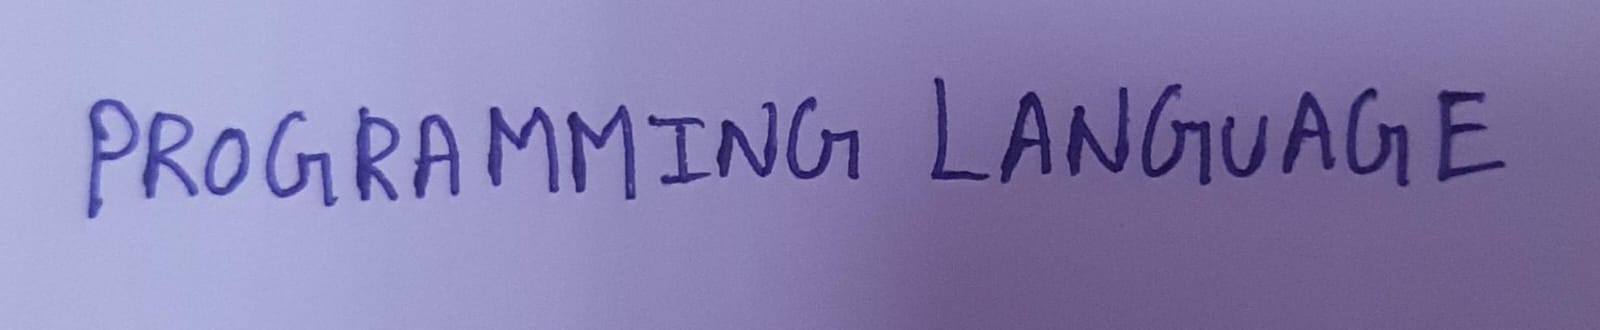 PROGRAMMING LANGUAGE